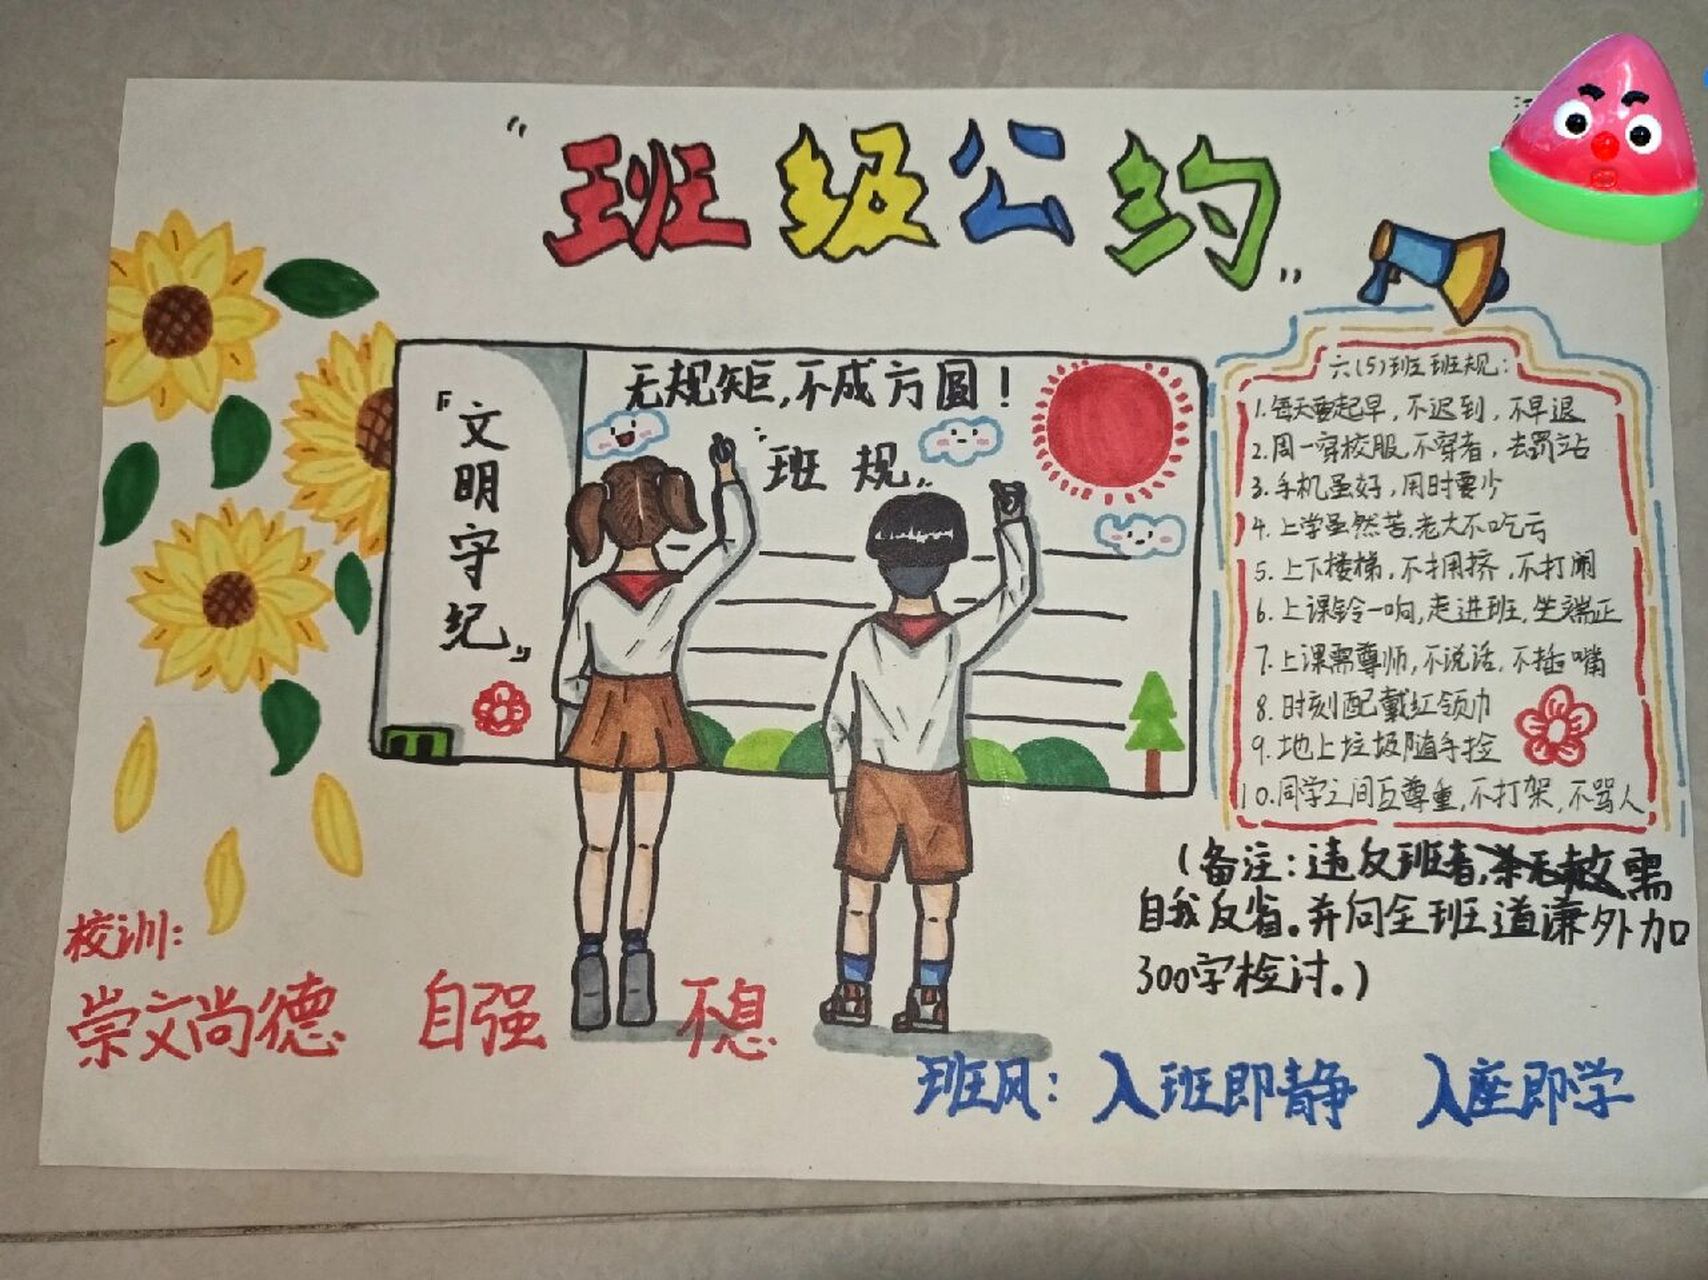 “班级公约”
「文明守纪」
无规矩，不成方圆！
“班规”
六(5)班班规：
1.每天要起早，不迟到，不早退
2.周一穿校服，不穿者，去罚站
3.手机虽好，用时要少
4.上学虽然苦，老大不吃亏
5.上下楼梯，不拥挤，不打闹
6.上课铃一响，走进班，坐端正
7.上课需尊师，不说话，不插嘴
8.时刻配戴红领巾
9.地上垃圾随手捡
10.同学之间互尊重，不打架，不骂人
（备注：违反班者，需
自我反省。并向全班道谦外加
300字检讨。）
校训：
崇文尚德 自强 不息
班风：入班即静 入座即学